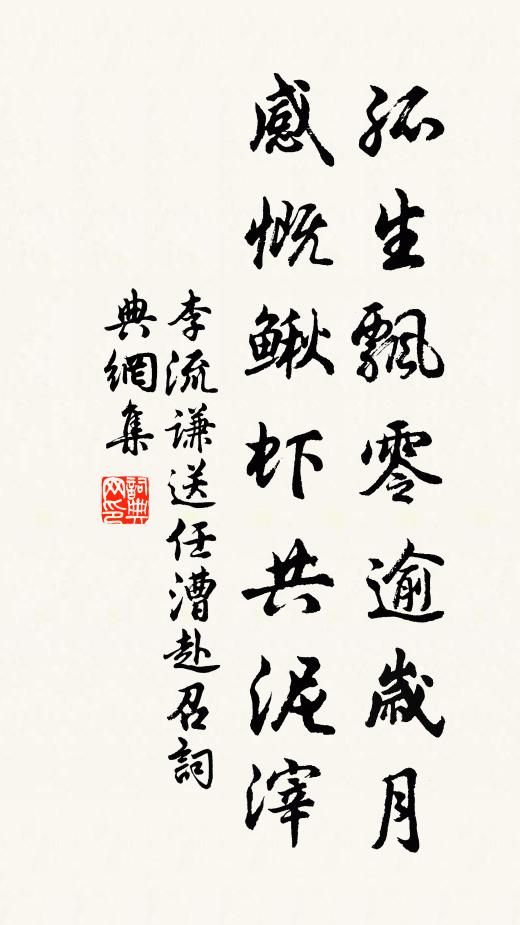 孤生飄零逾歲月
感慨鳅虾共泥滓
李流谦送任漕赴召詞
典網集
詞典网印